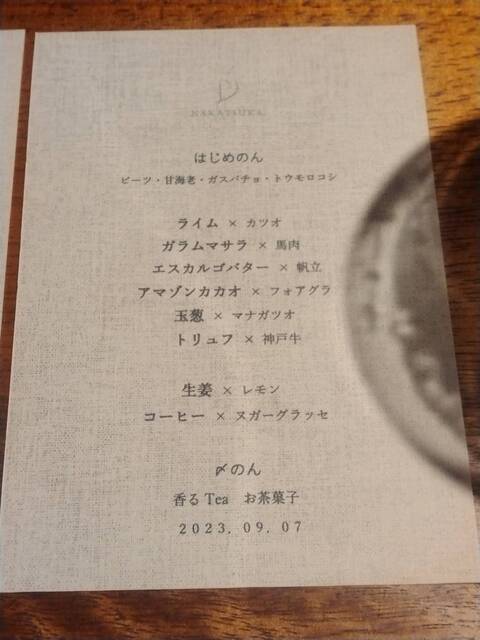 NAKATSUKA
はじめのん
ビーツ・甘海老・ガスパチョ・トウモロコシ
ライム × カツオ
ガラムマサラ × 馬肉
エスカルゴバター × 帆立
アマゾンカカオ × フォアグラ
玉葱 × マナガツオ
トリュフ × 神戸牛
生姜 × レモン
コーヒー × ヌガーグラッセ
〆のん
香るTea お茶菓子
2023.09.07